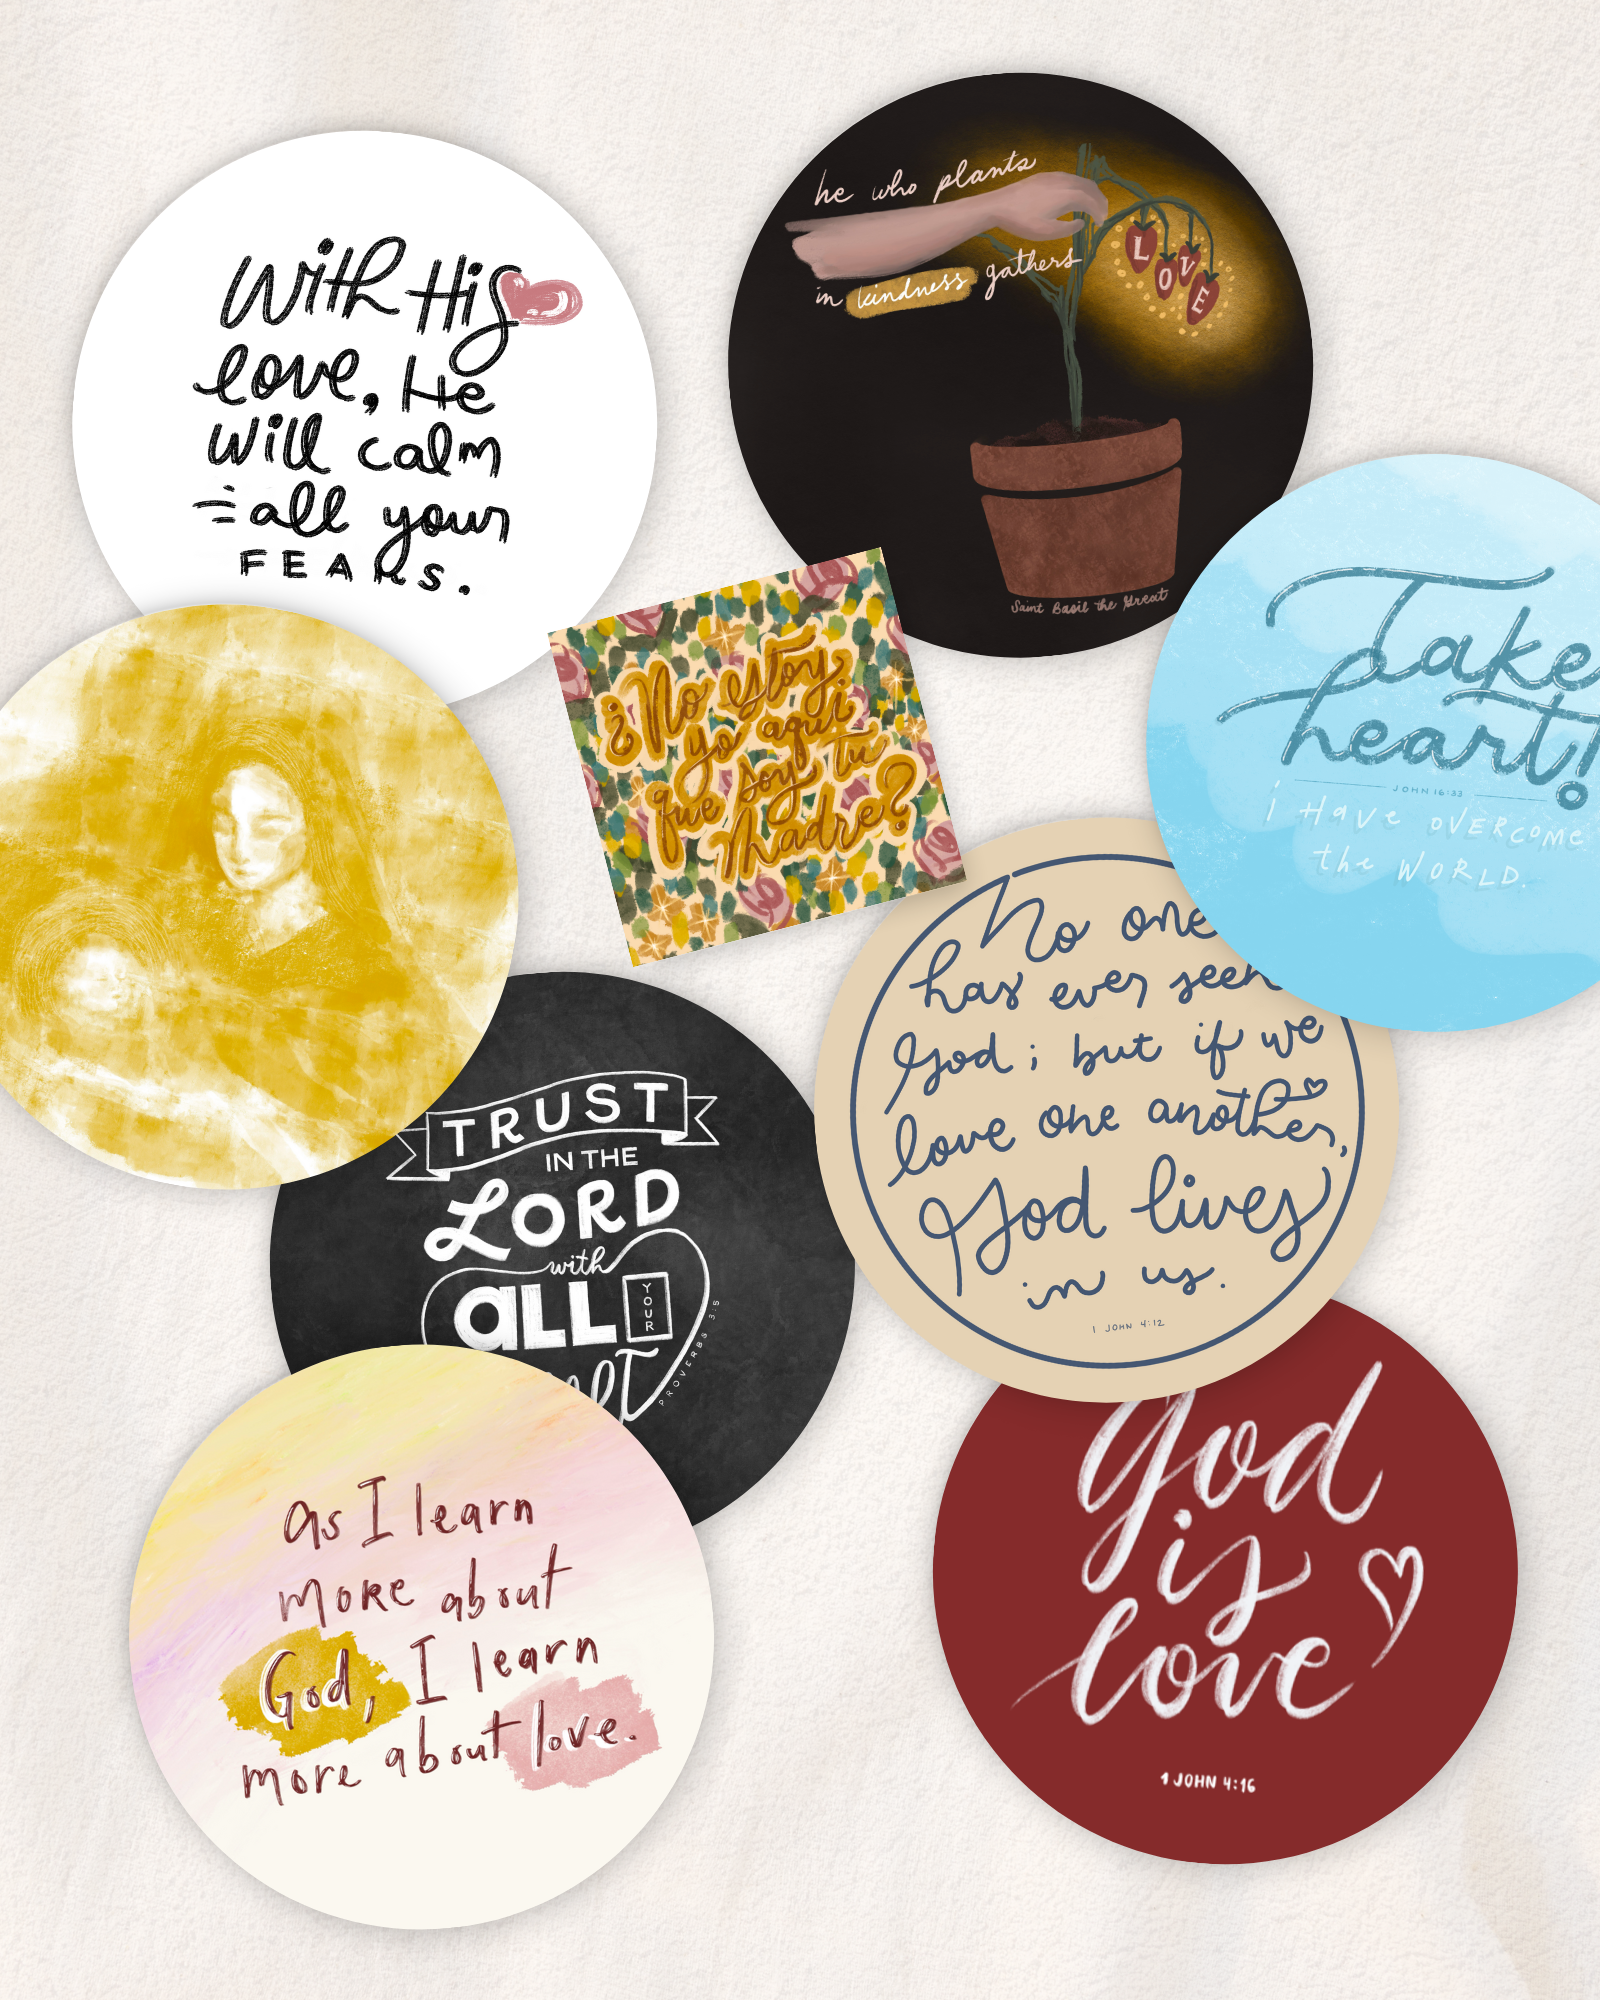 With His
love, He
will calm
all your
FEARS.
he who plants
in kindness gathers
L O V E
Saint Basil the Great
Take
heart!
JOHN 16:33
i Have OVERCOME
the WORLD.
¿No estoy
yo aqui
que soy tu
Madre?
No one
has ever seen
God; but if we
love one another,
God lives
in us.
1 JOHN 4:12
TRUST
IN THE
LORD
with
aLL YOUR
PROVERBS 3:5
As I learn
more about
God, I learn
more about love.
God
is
love
1 JOHN 4:16